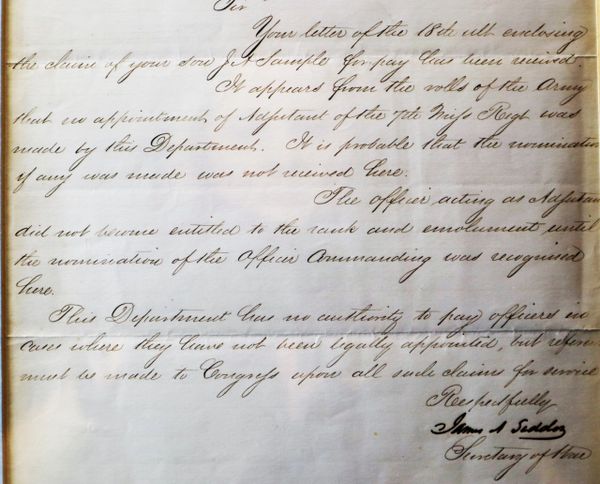 Sir
Your letter of the 18th ult enclosing
the claim of your son J A Sample for pay has been received.
It appears from the rolls of the Army
that no appointment of Adjutant of the 7th Miss Regt was
made by this Department. It is probable that the nomination
if any was made was not received here.
The officer acting as Adjutan
did not become entitled to the rank and emolument until
the nomination of the Officer Commanding was recognised
here.
This Department has no authority to pay officers in
cases where they have not been legally appointed, but referen
must be made to Congress upon all such claims for service
Respectfully
James A Seddon
Secretary of War